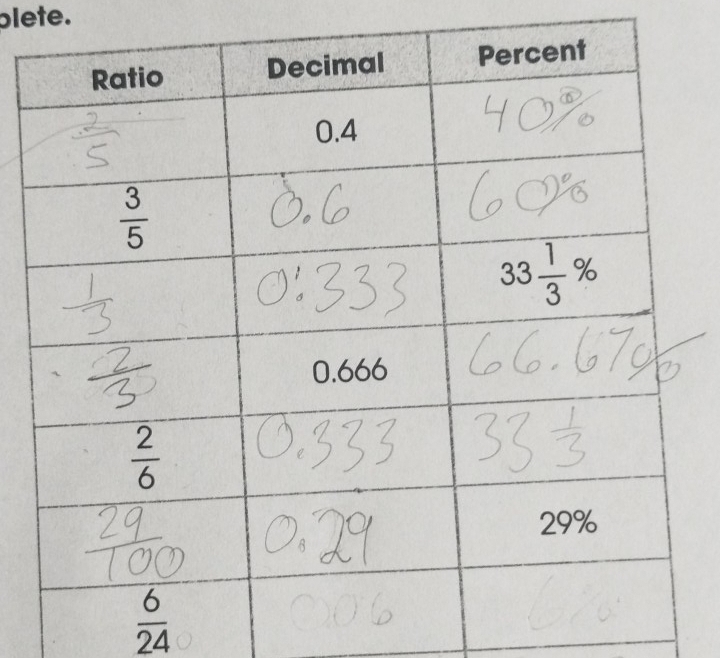 plete.
Ratio Decimal Percent
2/5 0.4 40%
3/5 0.6 60%
1/3 0.333 33 1/3 %
2/3 0.666 66.67%
2/6 0.333 33 1/3
29/100 0.29 29%
6/24 0.06 6%